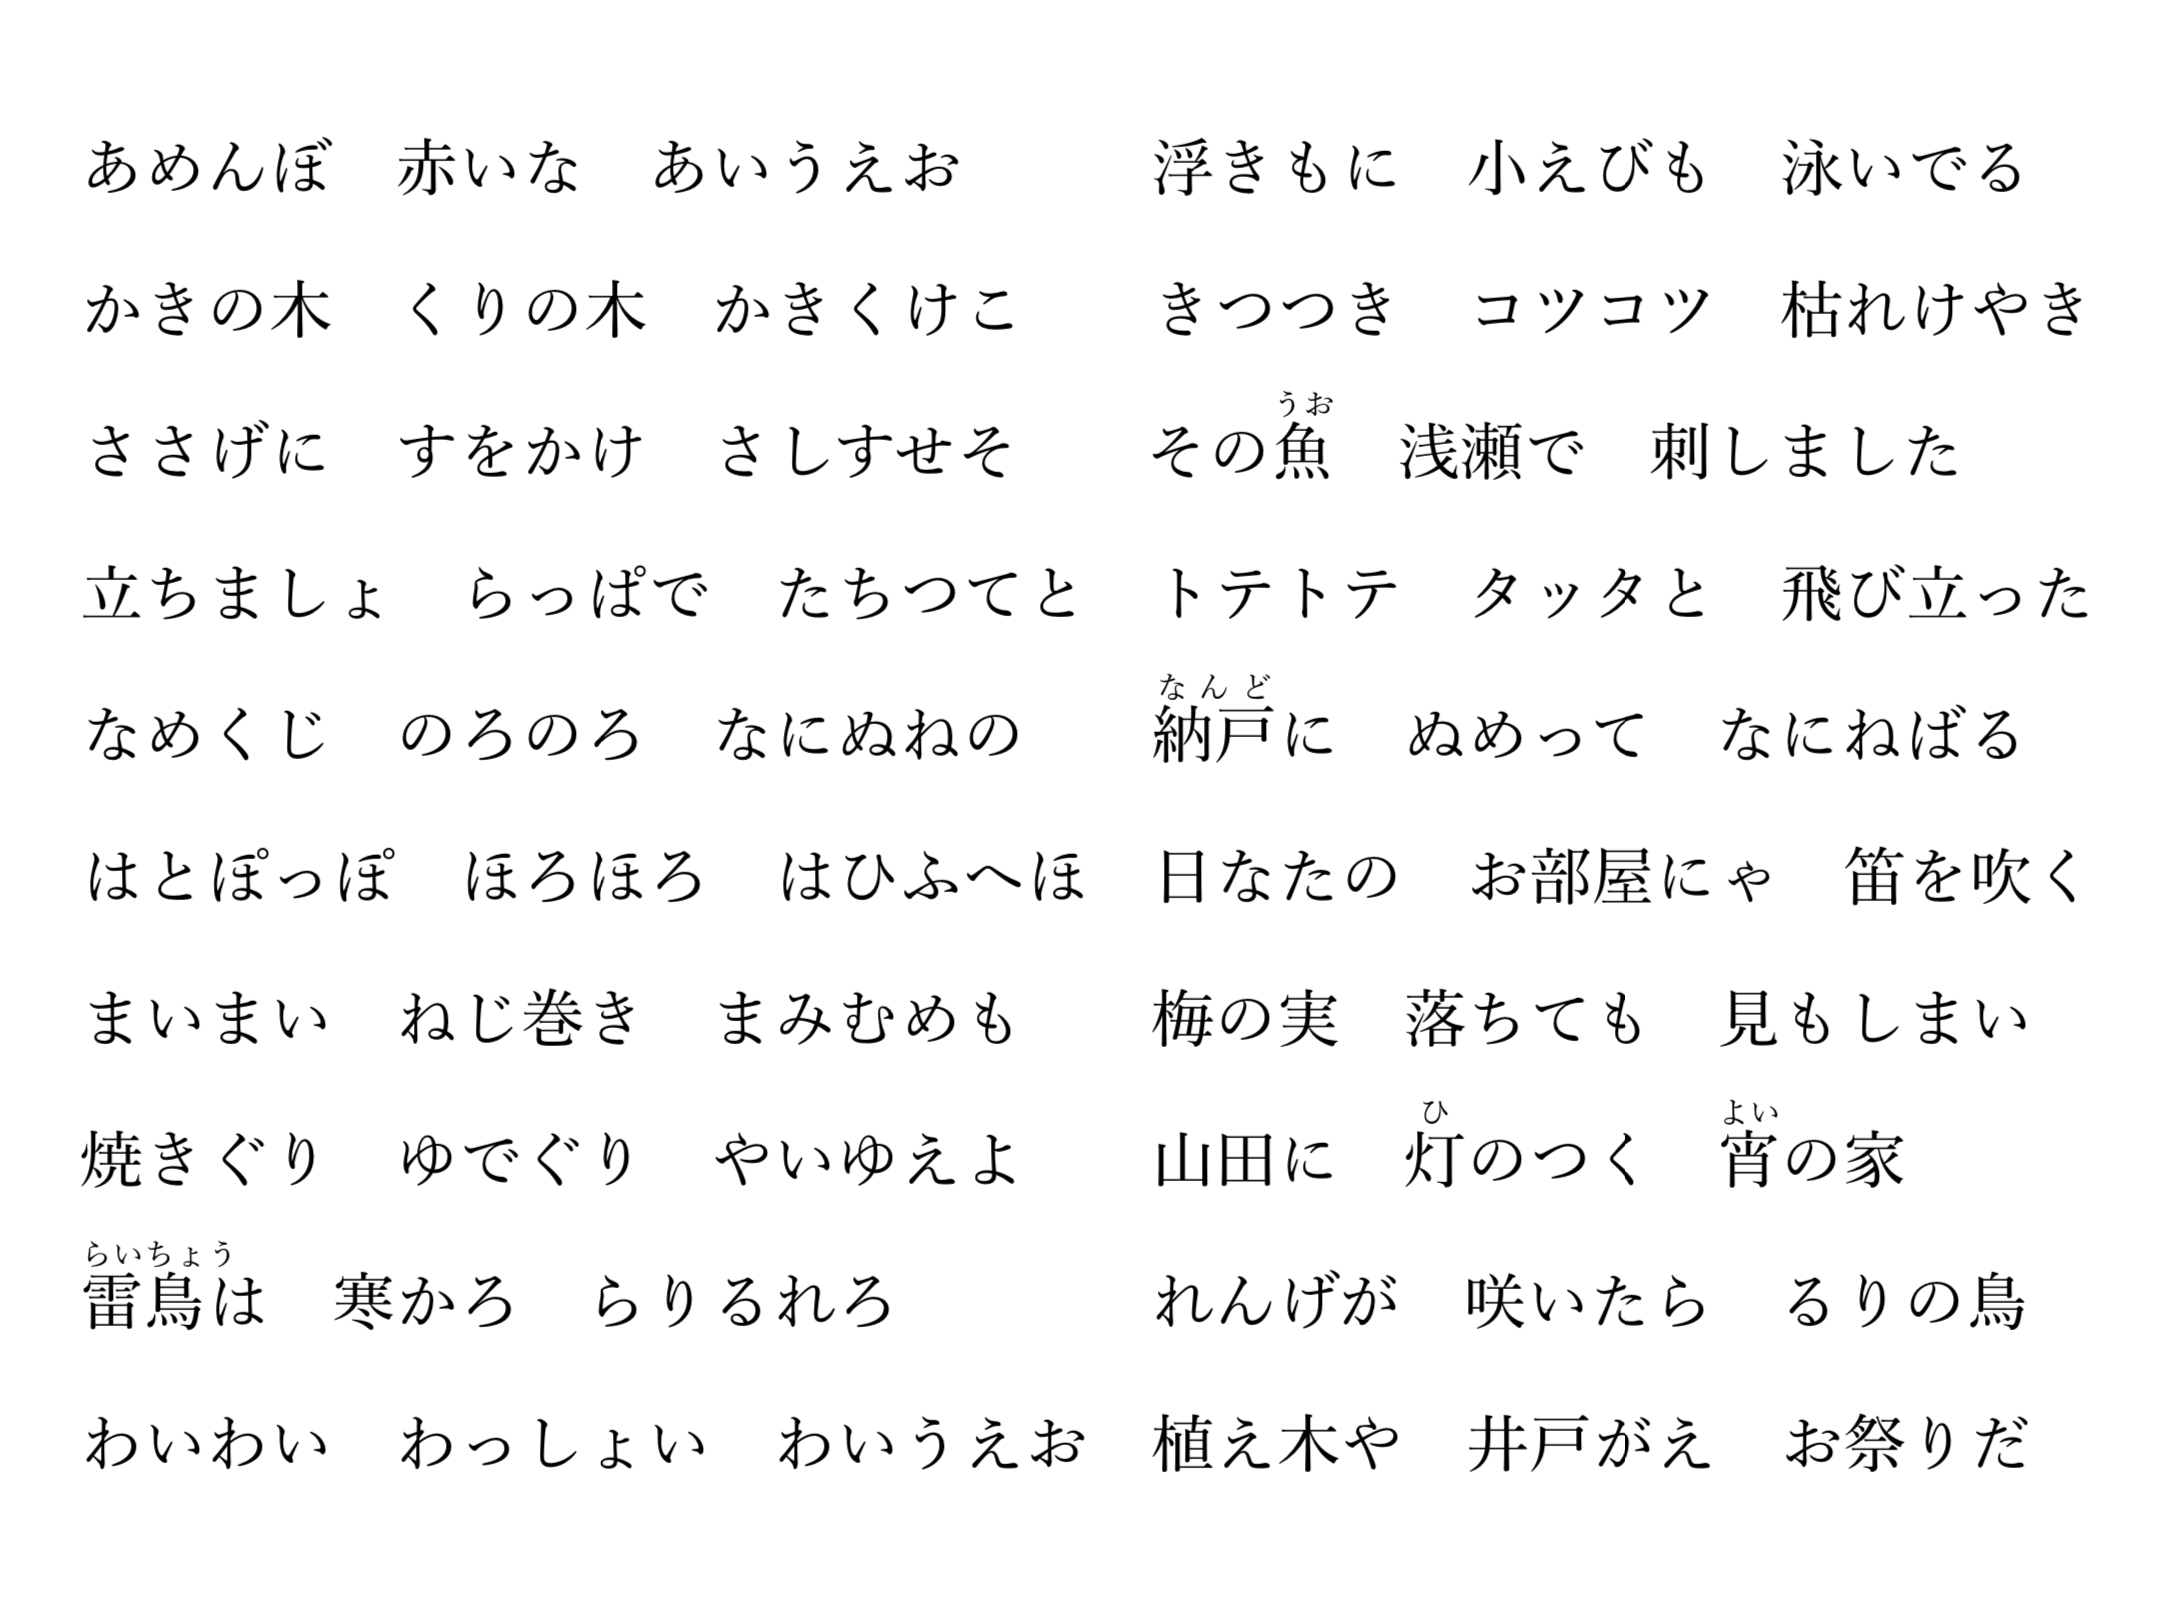 あめんぼ　赤いな　あいうえお　浮きもに　小えびも　泳いでる
かきの木　くりの木　かきくけこ　きつつき　コツコツ　枯れけやき
ささげに　すをかけ　さしすせそ　その魚　浅瀬で　刺しました
うお
立ちましょ　らっぱで　たちつてと　トテトテ　タッタと　飛び立った
なめくじ　のろのろ　なにぬねの　納戸に　ぬめって　なにねばる
なんど
はとぽっぽ　ほろほろ　はひふへほ　日なたの　お部屋にゃ　笛を吹く
まいまい　ねじ巻き　まみむめも　梅の実　落ちても　見もしまい
焼きぐり　ゆでぐり　やいゆえよ　山田に　灯のつく　宵の家
ひ　よい
雷鳥は　寒かろ　らりるれろ　れんげが　咲いたら　るりの鳥
らいちょう
わいわい　わっしょい　わいうえお　植え木や　井戸がえ　お祭りだ